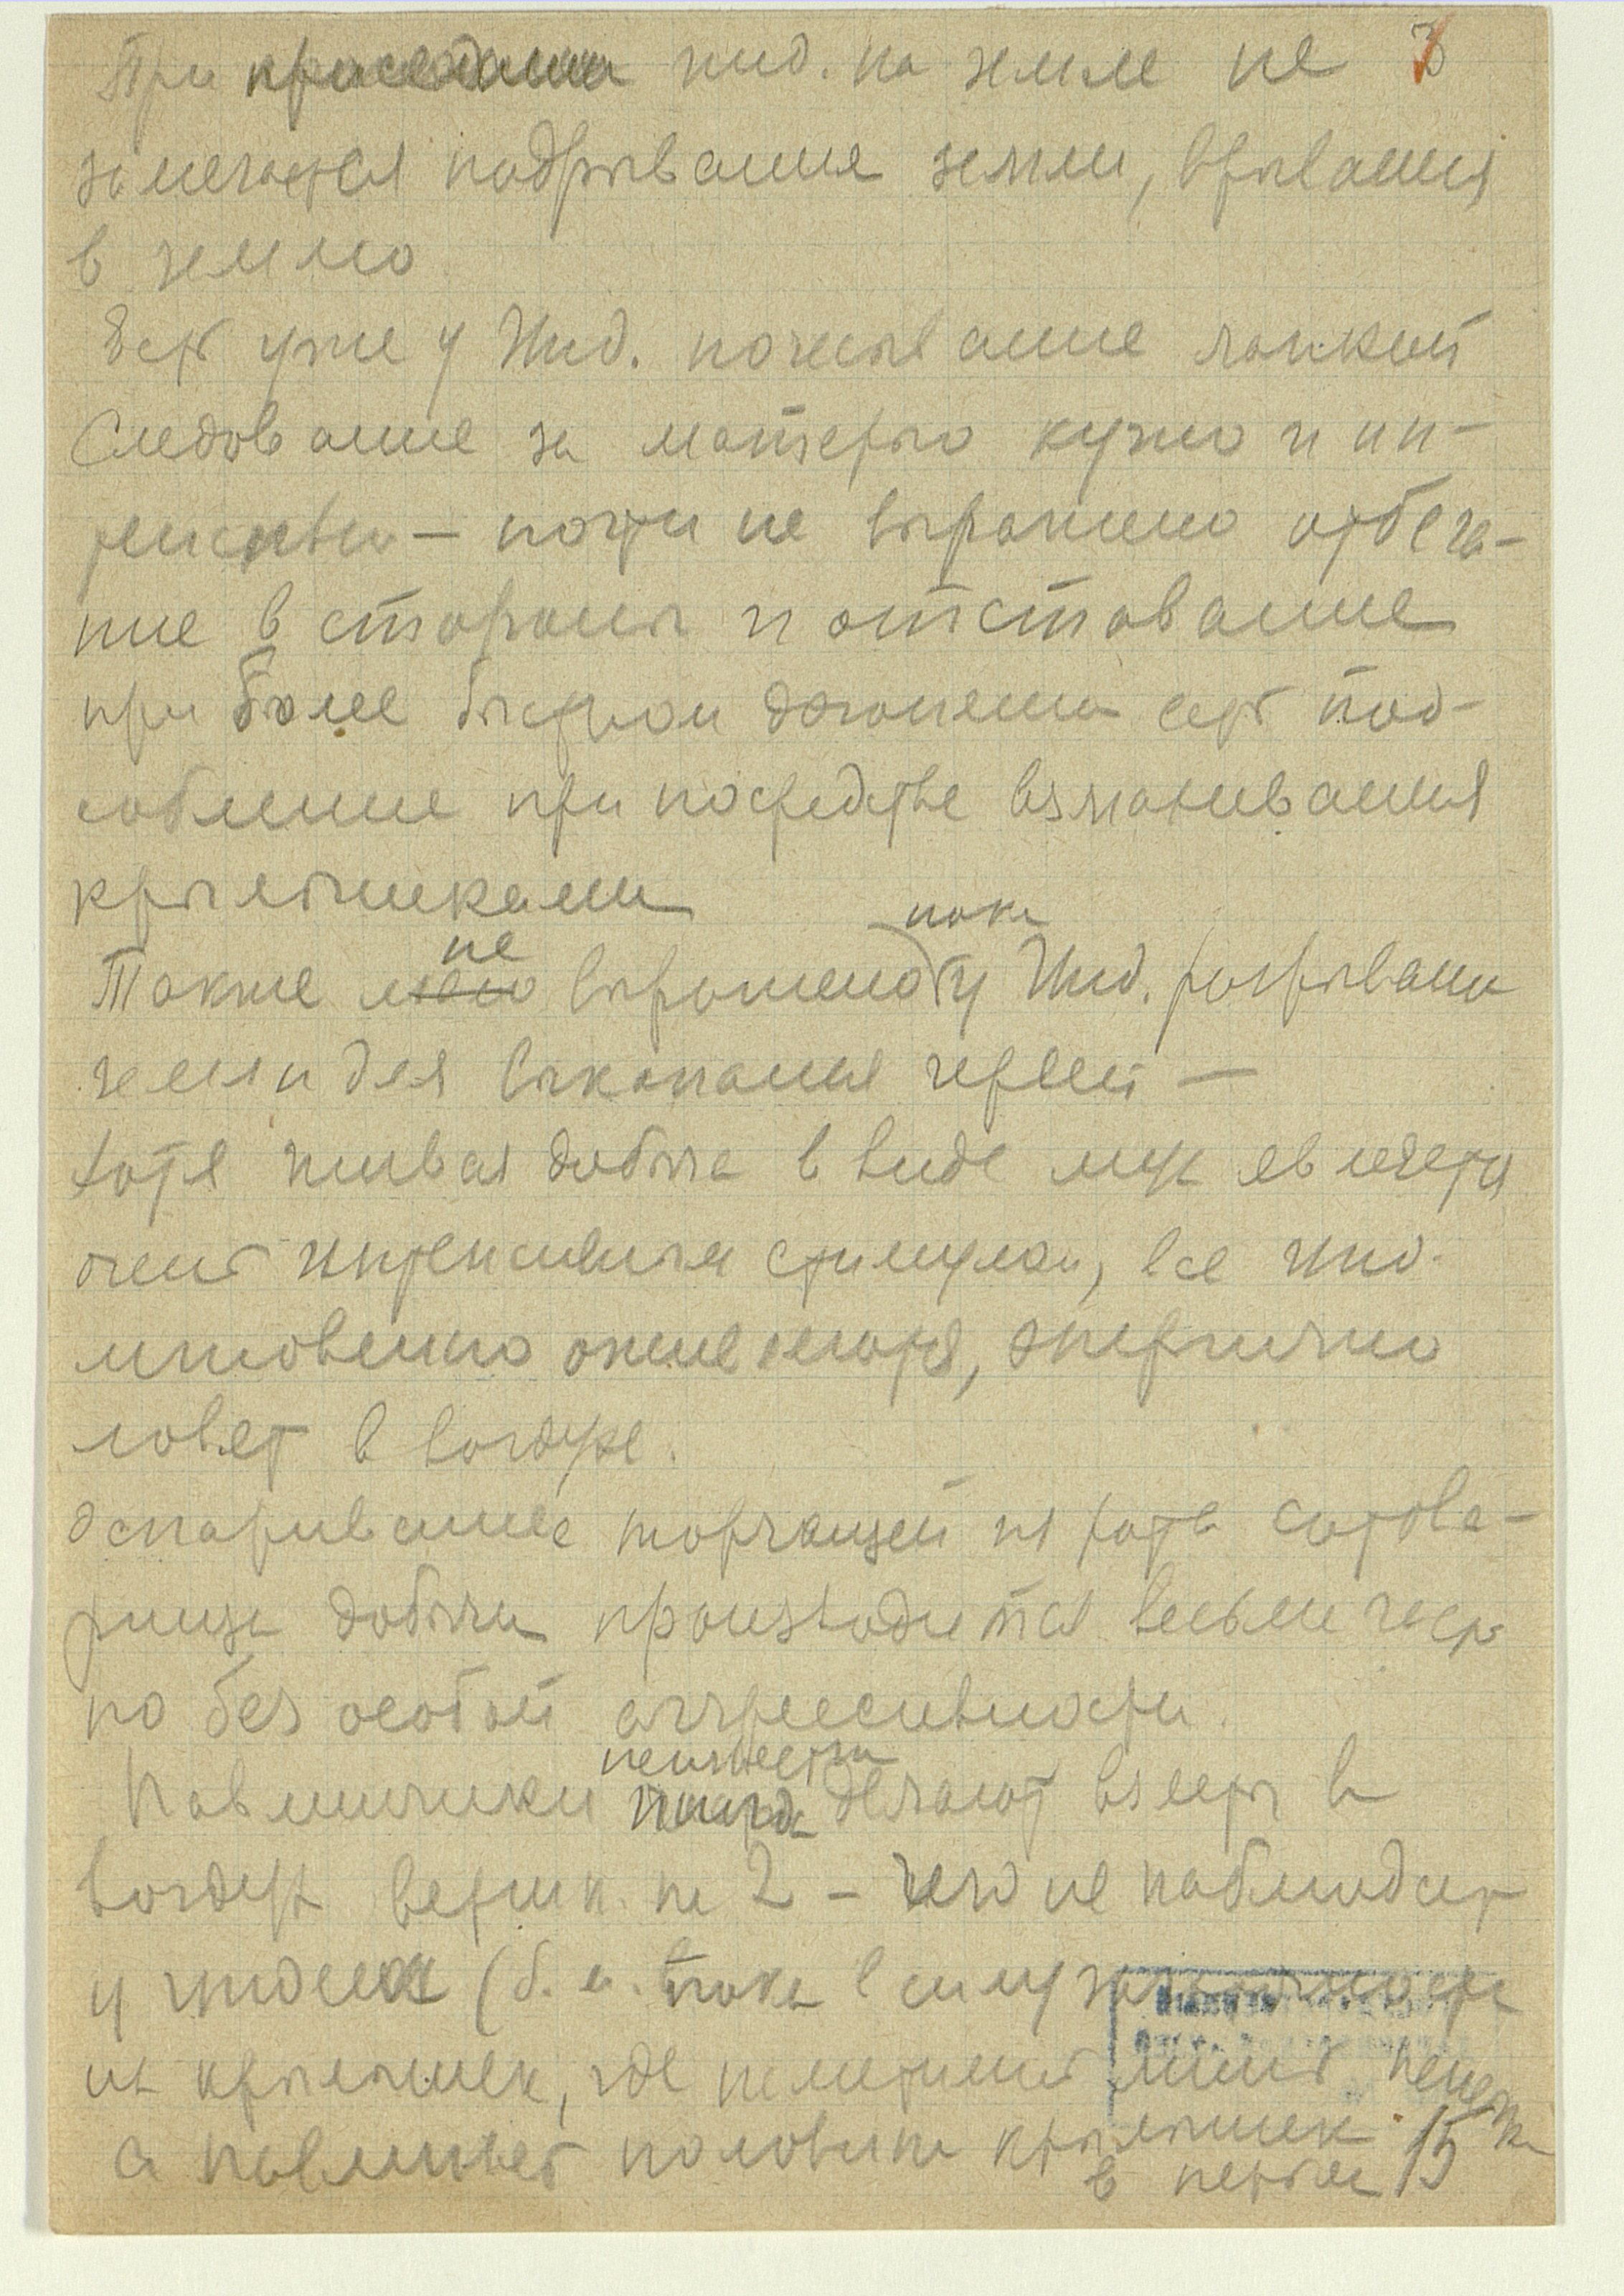 При приседании инд. на земле не 3
замечается подрывание земли, врывания
в землю
Есть уже у Инд. почесывание лапкой
Следование за матерью кучно и ин-
тенсивно — почти не выражено отбега-
ние в стороны и отставание
при более быстром догонении есть под-
собление при посредстве взмахивания
крылышками
Также мало не выражено пока у Инд. разрывание
земли для выкапывания червей —
хотя живая добыча в виде мух является
очень интенсивным стимулом, все инд.
мгновенно оживляются, энергично
ловят в воздухе.
Оспаривание торчащей из рта сотова-
рища добычи производится весьма часто
но без особой агрессивности.
Павлинчики неизвестн делают взлеты в
воздух вертик. на 2 – чего не наблюдает
у индеек (б. м. пока в силу
их крылышек, где наметились лишь пеньки
а павлиньей половина крылышек
в перьях 15